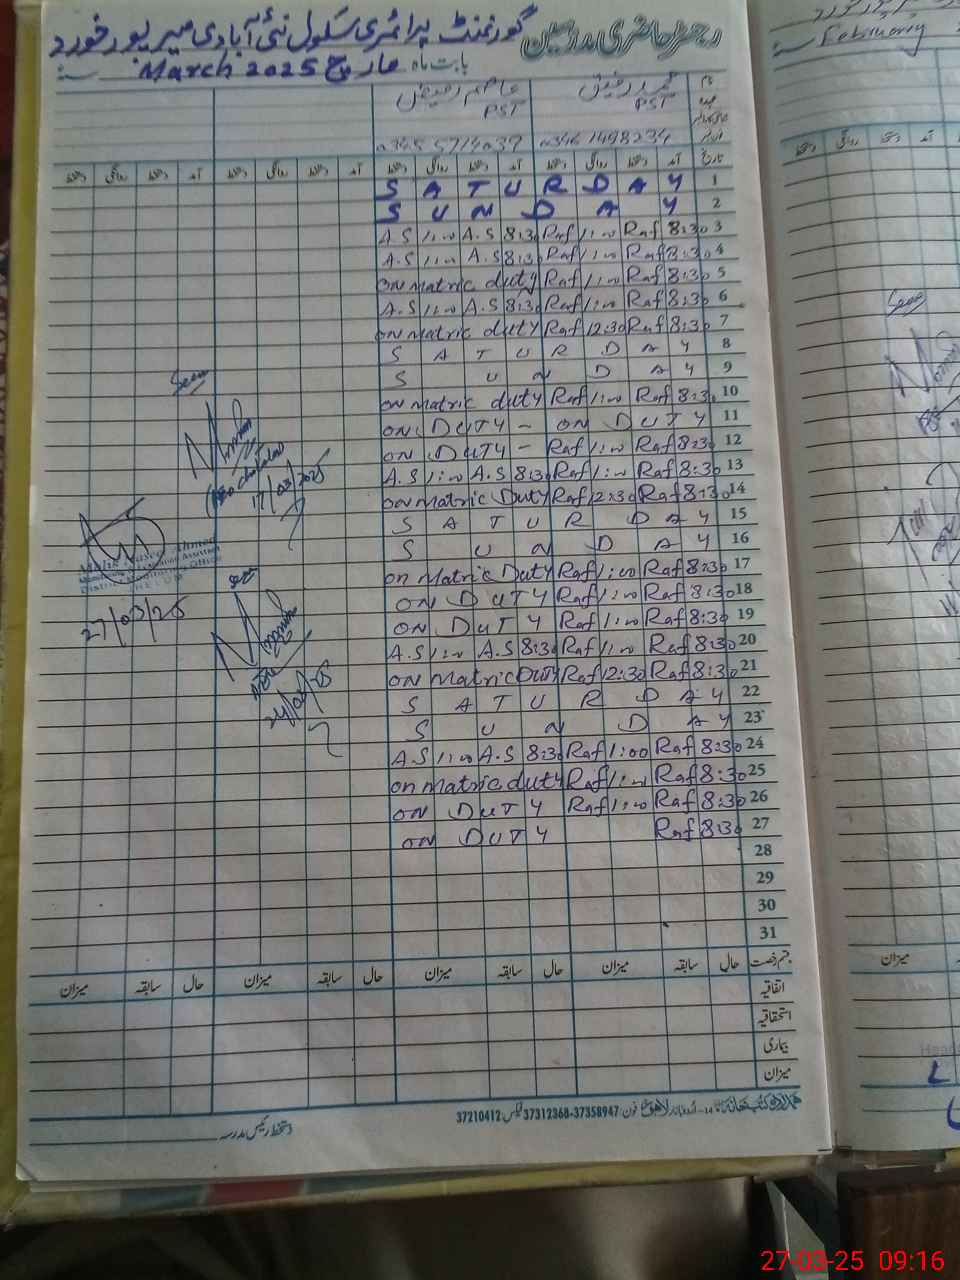 رجسٹر حاضری مدرسین گورنمنٹ پرائمری سکول نئی آبادی میرپور خورد
بابت ماہ مارچ March 2025 سنہ
نام محمد رفیق عاصم رفیق
عہدہ PST PST
0346 1498234 0345 5714037
تاریخ آمد دستخط روانگی دستخط آمد دستخط روانگی دستخط آمد دستخط روانگی دستخط آمد دستخط روانگی دستخط
S A T U R D A Y 1
S U N D A Y 2
A.S 1:00 A.S 8:30 Raf 1:00 Raf 8:30 3
A.S 1:00 A.S 8:30 Raf 1:00 Raf 8:30 4
on matric duty Raf 1:00 Raf 8:30 5
A.S 1:00 A.S 8:30 Raf 1:00 Raf 8:30 6
on matric duty Raf 12:30 Raf 8:30 7
S A T U R D A Y 8
S U N D A Y 9
on matric duty Raf 1:00 Raf 8:30 10
ON DUTY - ON DUTY 11
ON DUTY - Raf 1:00 Raf 8:30 12
A.S 1:00 A.S 8:30 Raf 1:00 Raf 8:30 13
on matric Duty Raf 12:30 Raf 8:30 14
S A T U R D A Y 15
S U N D A Y 16
on Matric Duty Raf 1:00 Raf 8:30 17
ON DUTY Raf 1:00 Raf 8:30 18
ON DUTY Raf 1:00 Raf 8:30 19
A.S 1:00 A.S 8:30 Raf 1:00 Raf 8:30 20
on Matric Duty Raf 12:30 Raf 8:30 21
S A T U R D A Y 22
S U N D A Y 23
A.S 1:00 A.S 8:30 Raf 1:00 Raf 8:30 24
on matric duty Raf 1:00 Raf 8:30 25
on DUTY Raf 1:00 Raf 8:30 26
on DUTY Raf 8:30 27
28
29
30
31
Seen
17/03/2025
Ahmed
District Monitoring Office
27/03/25
Seen
قسم رخصت حال سابقہ میزان حال سابقہ میزان حال سابقہ میزان حال سابقہ میزان
اتفاقیہ
استحقاقیہ
بیماری
میزان
لاہور فون 37312368-37358947 فیکس 37210412
دستخط رئیس مدرسہ
February
سنہ
آمد دستخط روانگی دستخط
Seen
میزان
27-03-25 09:16